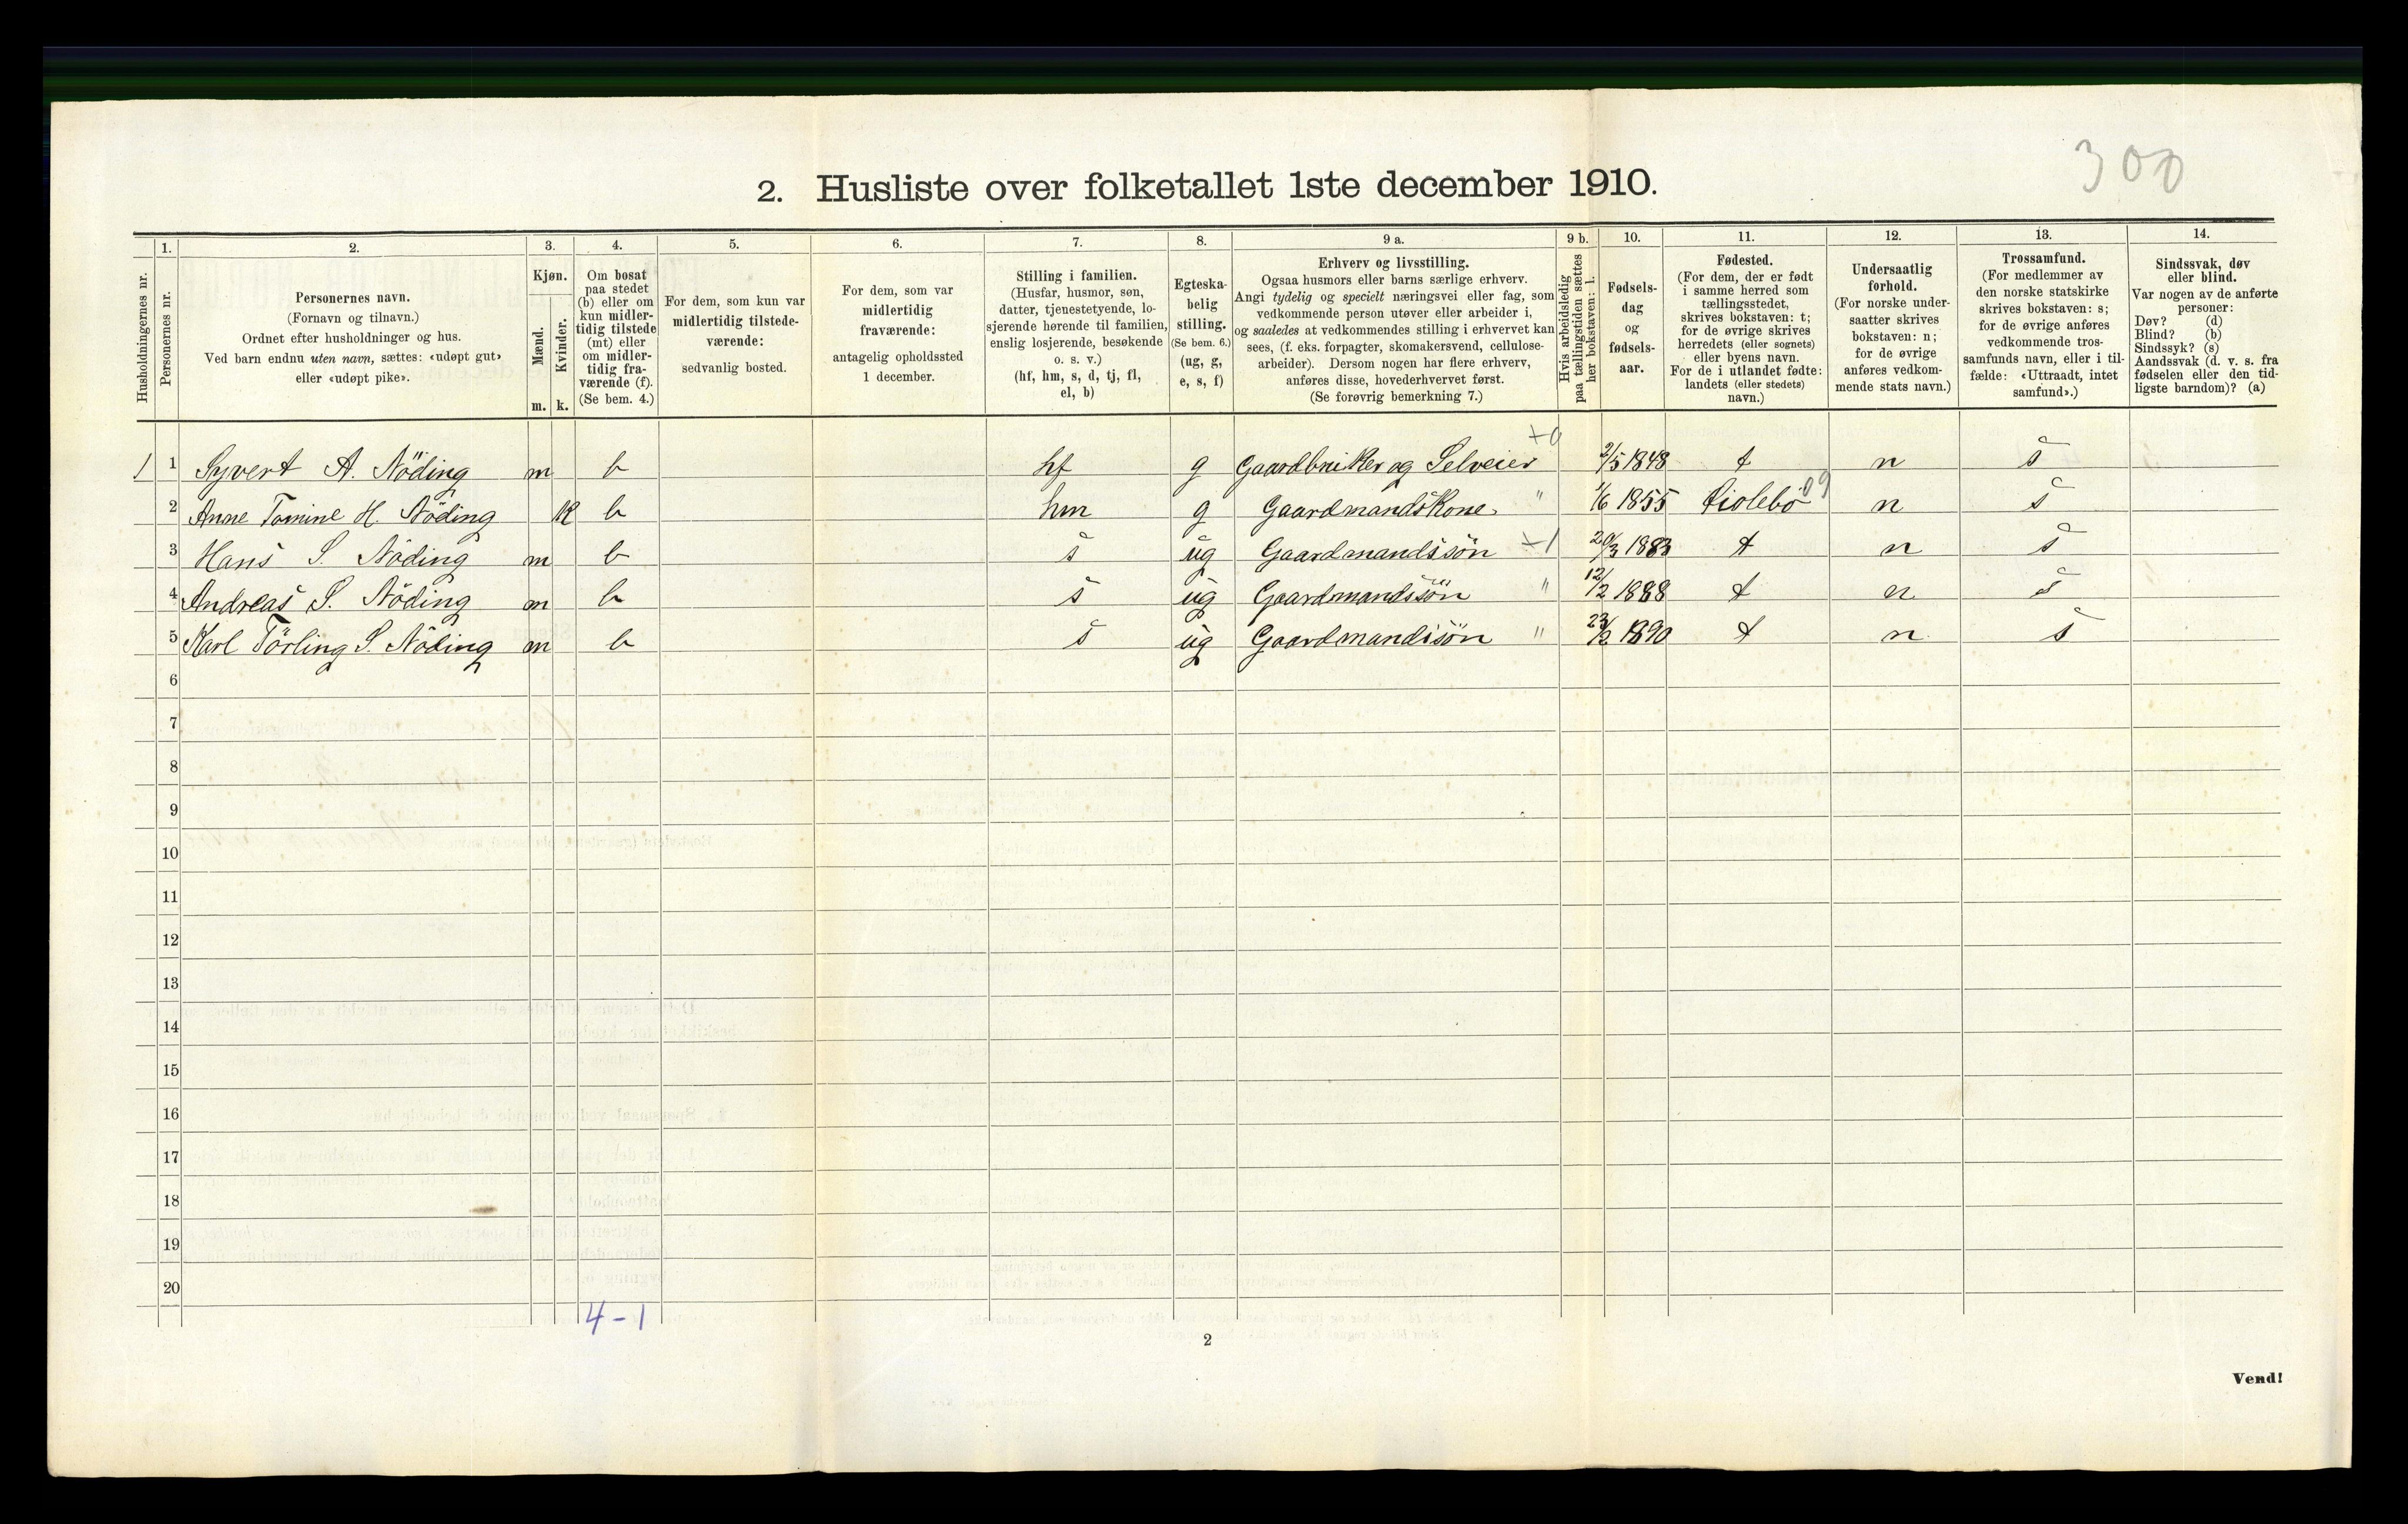 300
2. Husliste over folketallet 1ste december 1910.
Husholdningernes nr.
1.
Personernes nr.
2.
Personernes navn.
(Fornavn og tilnavn.)
Ordnet efter husholdninger og hus.
Ved barn endnu uten navn, sættes: «udøpt gut»
eller «udøpt pike».
3.
Kjøn.
Mænd.
Kvinder.
m. k.
4.
Om bosat
paa stedet
(b) eller om
kun midler-
tidig tilstede
(mt) eller
om midler-
tidig fra-
værende (f).
(Se bem. 4.)
5.
For dem, som kun var
midlertidig tilstede-
værende:
sedvanlig bosted.
6.
For dem, som var
midlertidig
fraværende:
antagelig opholdssted
1 december.
7.
Stilling i familien.
(Husfar, husmor, søn,
datter, tjenestetyende, lo-
sjerende hørende til familien,
enslig losjerende, besøkende
o. s. v.)
(hf, hm, s, d, tj, fl,
el, b)
8.
Egteska-
belig
stilling.
(Se bem. 6.)
(ug, g,
e, s, f)
9 a.
Erhverv og livsstilling.
Ogsaa husmors eller barns særlige erhverv.
Angi tydelig og specielt næringsvei eller fag, som
vedkommende person utøver eller arbeider i,
og saaledes at vedkommendes stilling i erhvervet kan
sees, (f. eks. forpagter, skomakersvend, cellulose-
arbeider). Dersom nogen har flere erhverv,
anføres disse, hovederhvervet først.
(Se forøvrig bemerkning 7.)
9 b.
Hvis arbeidsledig
paa tællingstiden sættes
her bokstaven: l.
10.
Fødsels-
dag
og
fødsels-
aar.
11.
Fødested.
(For dem, der er født
i samme herred som
tællingsstedet,
skrives bokstaven: t;
for de øvrige skrives
herredets (eller sognets)
eller byens navn.
For de i utlandet fødte:
landets (eller stedets)
navn.)
12.
Undersaatlig
forhold.
(For norske under-
saatter skrives
bokstaven: n;
for de øvrige
anføres vedkom-
mende stats navn.)
13.
Trossamfund.
(For medlemmer av
den norske statskirke
skrives bokstaven: s;
for de øvrige anføres
vedkommende tros-
samfunds navn, eller i til-
fælde: «Uttraadt, intet
samfund».)
14.
Sindssvak, døv
eller blind.
Var nogen av de anførte
personer:
Døv? (d)
Blind? (b)
Sindssyk? (s)
Aandssvak (d. v. s. fra
fødselen eller den tid-
ligste barndom)? (a)
1 1 Syvert A. Nöding m b hf g Gaardbruker og Selveier +0 2/5 1848 t n s
2 Anne Tomine H. Nöding K b hm g Gaardmandskone " 1/6 1855 Öislebö 09 n s
3 Hans S. Nöding m b s ug Gaardmandssön +1 20/3 1883 t n s
4 Andreas S. Nöding m b s ug Gaardmandssön " 12/2 1888 t n s
5 Karl Törling S. Nöding m b s ug Gaardmandssön " 23/2 1890 t n s
6
7
8
9
10
11
12
13
14
15
16
17
18
19
20
4-1
2
Vend!